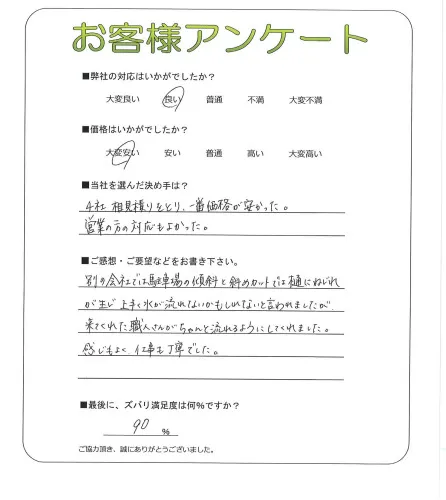 お客様アンケート
■弊社の対応はいかがでしたか？
大変良い 良い 普通 不満 大変不満
■価格はいかがでしたか？
大変安い 安い 普通 高い 大変高い
■当社を選んだ決め手は？
4社 相見積りをとり、一番価格が安かった。
営業の方の対応もよかった。
■ご感想・ご要望などをお書き下さい。
別の会社では駐車場の傾斜と斜めカットでは樋にねじれ
が生じ 上手く水が流れないかもしれないと言われましたが、
来てくれた職人さんがちゃんと流れるようにしてくれました。
感じもよく、仕事も丁寧でした。
■最後に、ズバリ満足度は何%ですか？
90 %
ご協力頂き、誠にありがとうございました。